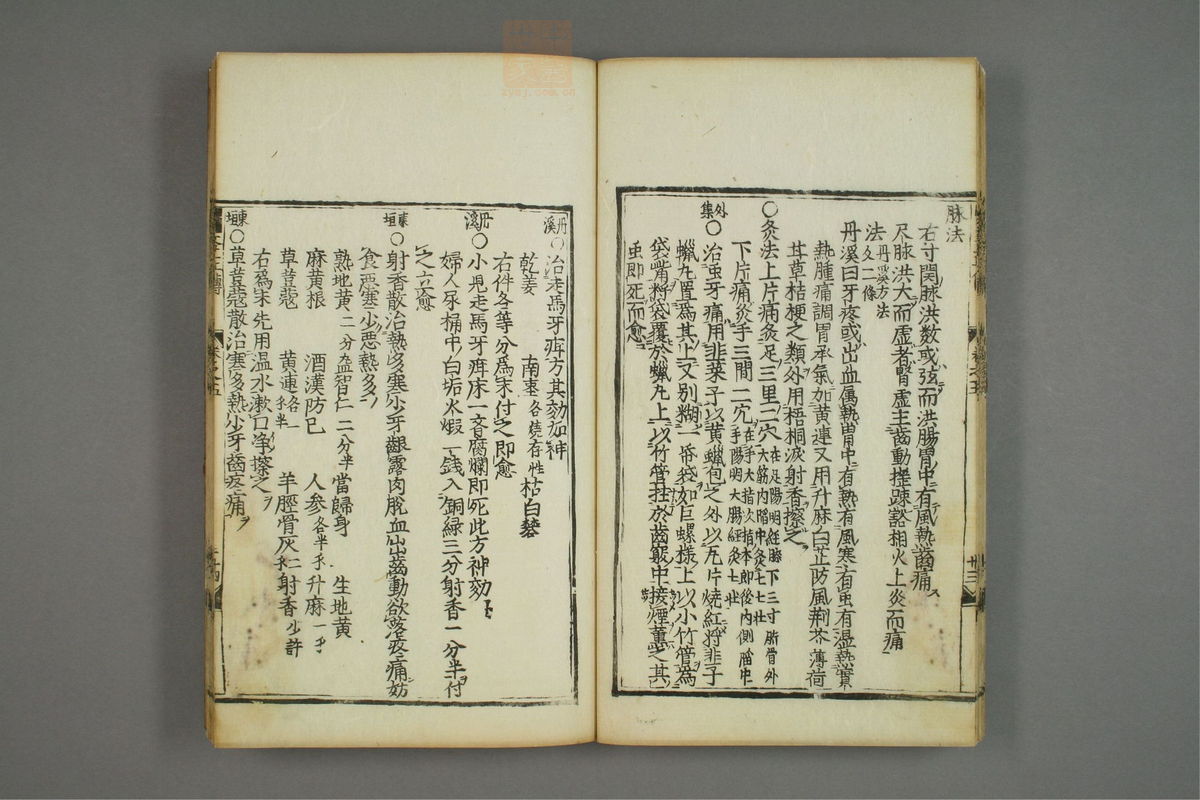 脉法
右寸関脉洪数或弦而洪腸胃中有風熱齒痛
尺脉洪大而虚者腎虚主齒動揺踈豁相火上炎而痛
法 丹溪方法
丹溪曰牙疼或出血属熱胃中有熱有風寒有虫有湿熱實
熱腫痛調胃承氣加黄連又用升麻白芷防風荆芥薄荷
甘草桔梗之類外用梧桐涙射香擦之
○灸法上片病灸足三里二穴在足陽明経膝下三寸䯒骨外大筋内陷中灸七七壮
下片痛灸手三間二穴在手大指次指本節後内側陷中手陽明大腸経灸七壮
外集○治虫牙痛用韭菜子以黄蠟包之外以瓦片焼紅将韭子
蠟丸置為其上又別糊一帋袋如巨螺様上以小竹管為
袋觜将袋覆於蠟丸上以竹管拄於齒䶩中接煙薫之其
虫即死而愈
丹溪○治走馬牙疳方其効如神
乾姜 南棗各燒存性 枯白礬
右件各等分為末付之即愈
丹溪○小児走馬牙疳床一時腐爛即死此方神効
婦人尿桶中白垢火煅一銭入銅緑三分射香一分半付
之立愈
東垣○射香散治熱多寒少牙齦露肉脱血出齒動欲落疼痛妨
食悪寒少悪熱多
熟地黄二分 益智仁二分半 當歸身 生地黄
麻黄根 酒漢防已 人参各半 升麻一
草荳蔲 黄連各一半 羊脛骨灰二 射香少許
右為末先用温水漱口净擦之
東垣○草荳蔲散治寒多熱少牙齒疼痛